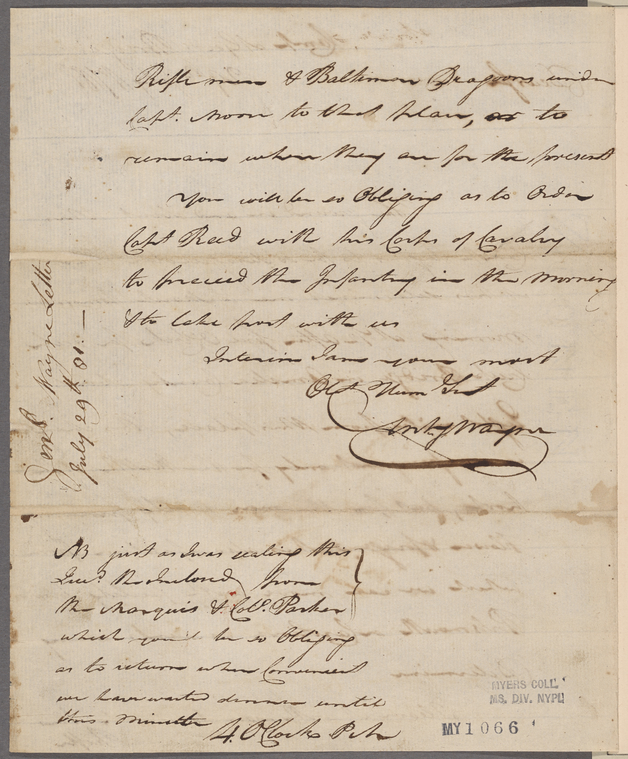 Rifle men & Baltimore Dragoons under
Capt. Moore to that place, or to
remain where they are for the present
You will be so Obliging as to Order
Capt Reed with his Corps of Cavalry
to preceed the Infantry in the Morning
& to take post with us
Interim I am your most
Obt Hum Sert
Anty Wayne
NB just as I was sealing this
Recd. the Inclosed from
the Marquis & Colo. Parker
which you'l be so Obliging
as to return when Convenient
we have waited dinner until
this minute
4. OClock P.M.
Genl. Wayne Letter
July 29th. 81.
MYERS COLL.
MS. DIV. NYPL
MY1066